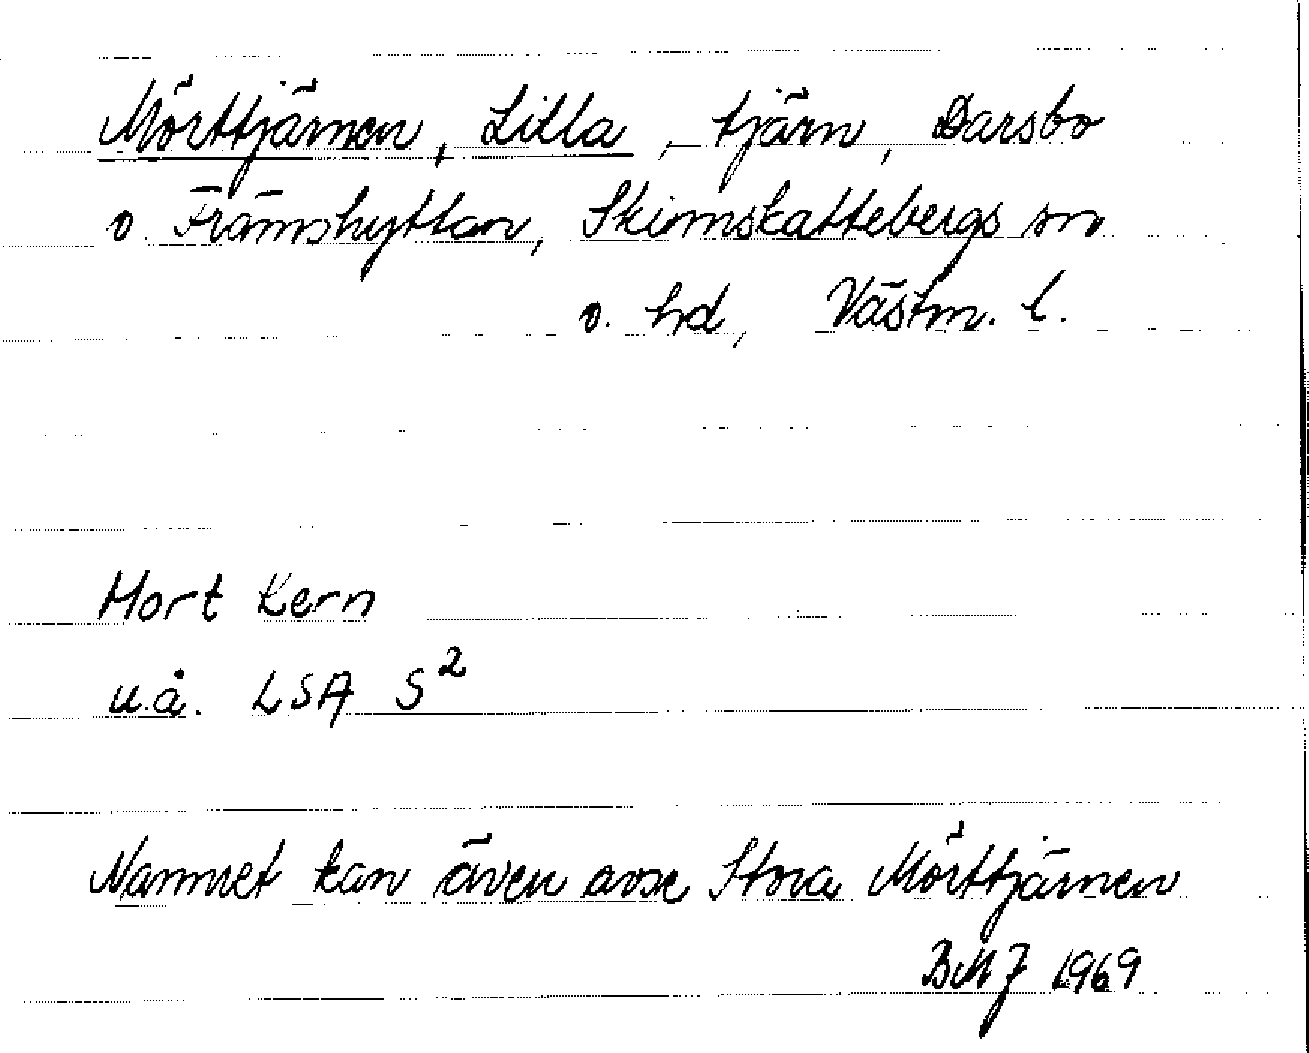 Mörttjärnen, Lilla, tjärn, Darsbo
o. Främshyttan, Skinnskattebergs sn
o. hd, Västm. l.
Mort Kern
u.å. LSA S²
Namnet kan även avse Stora Mörttjärnen
BMJ 1969